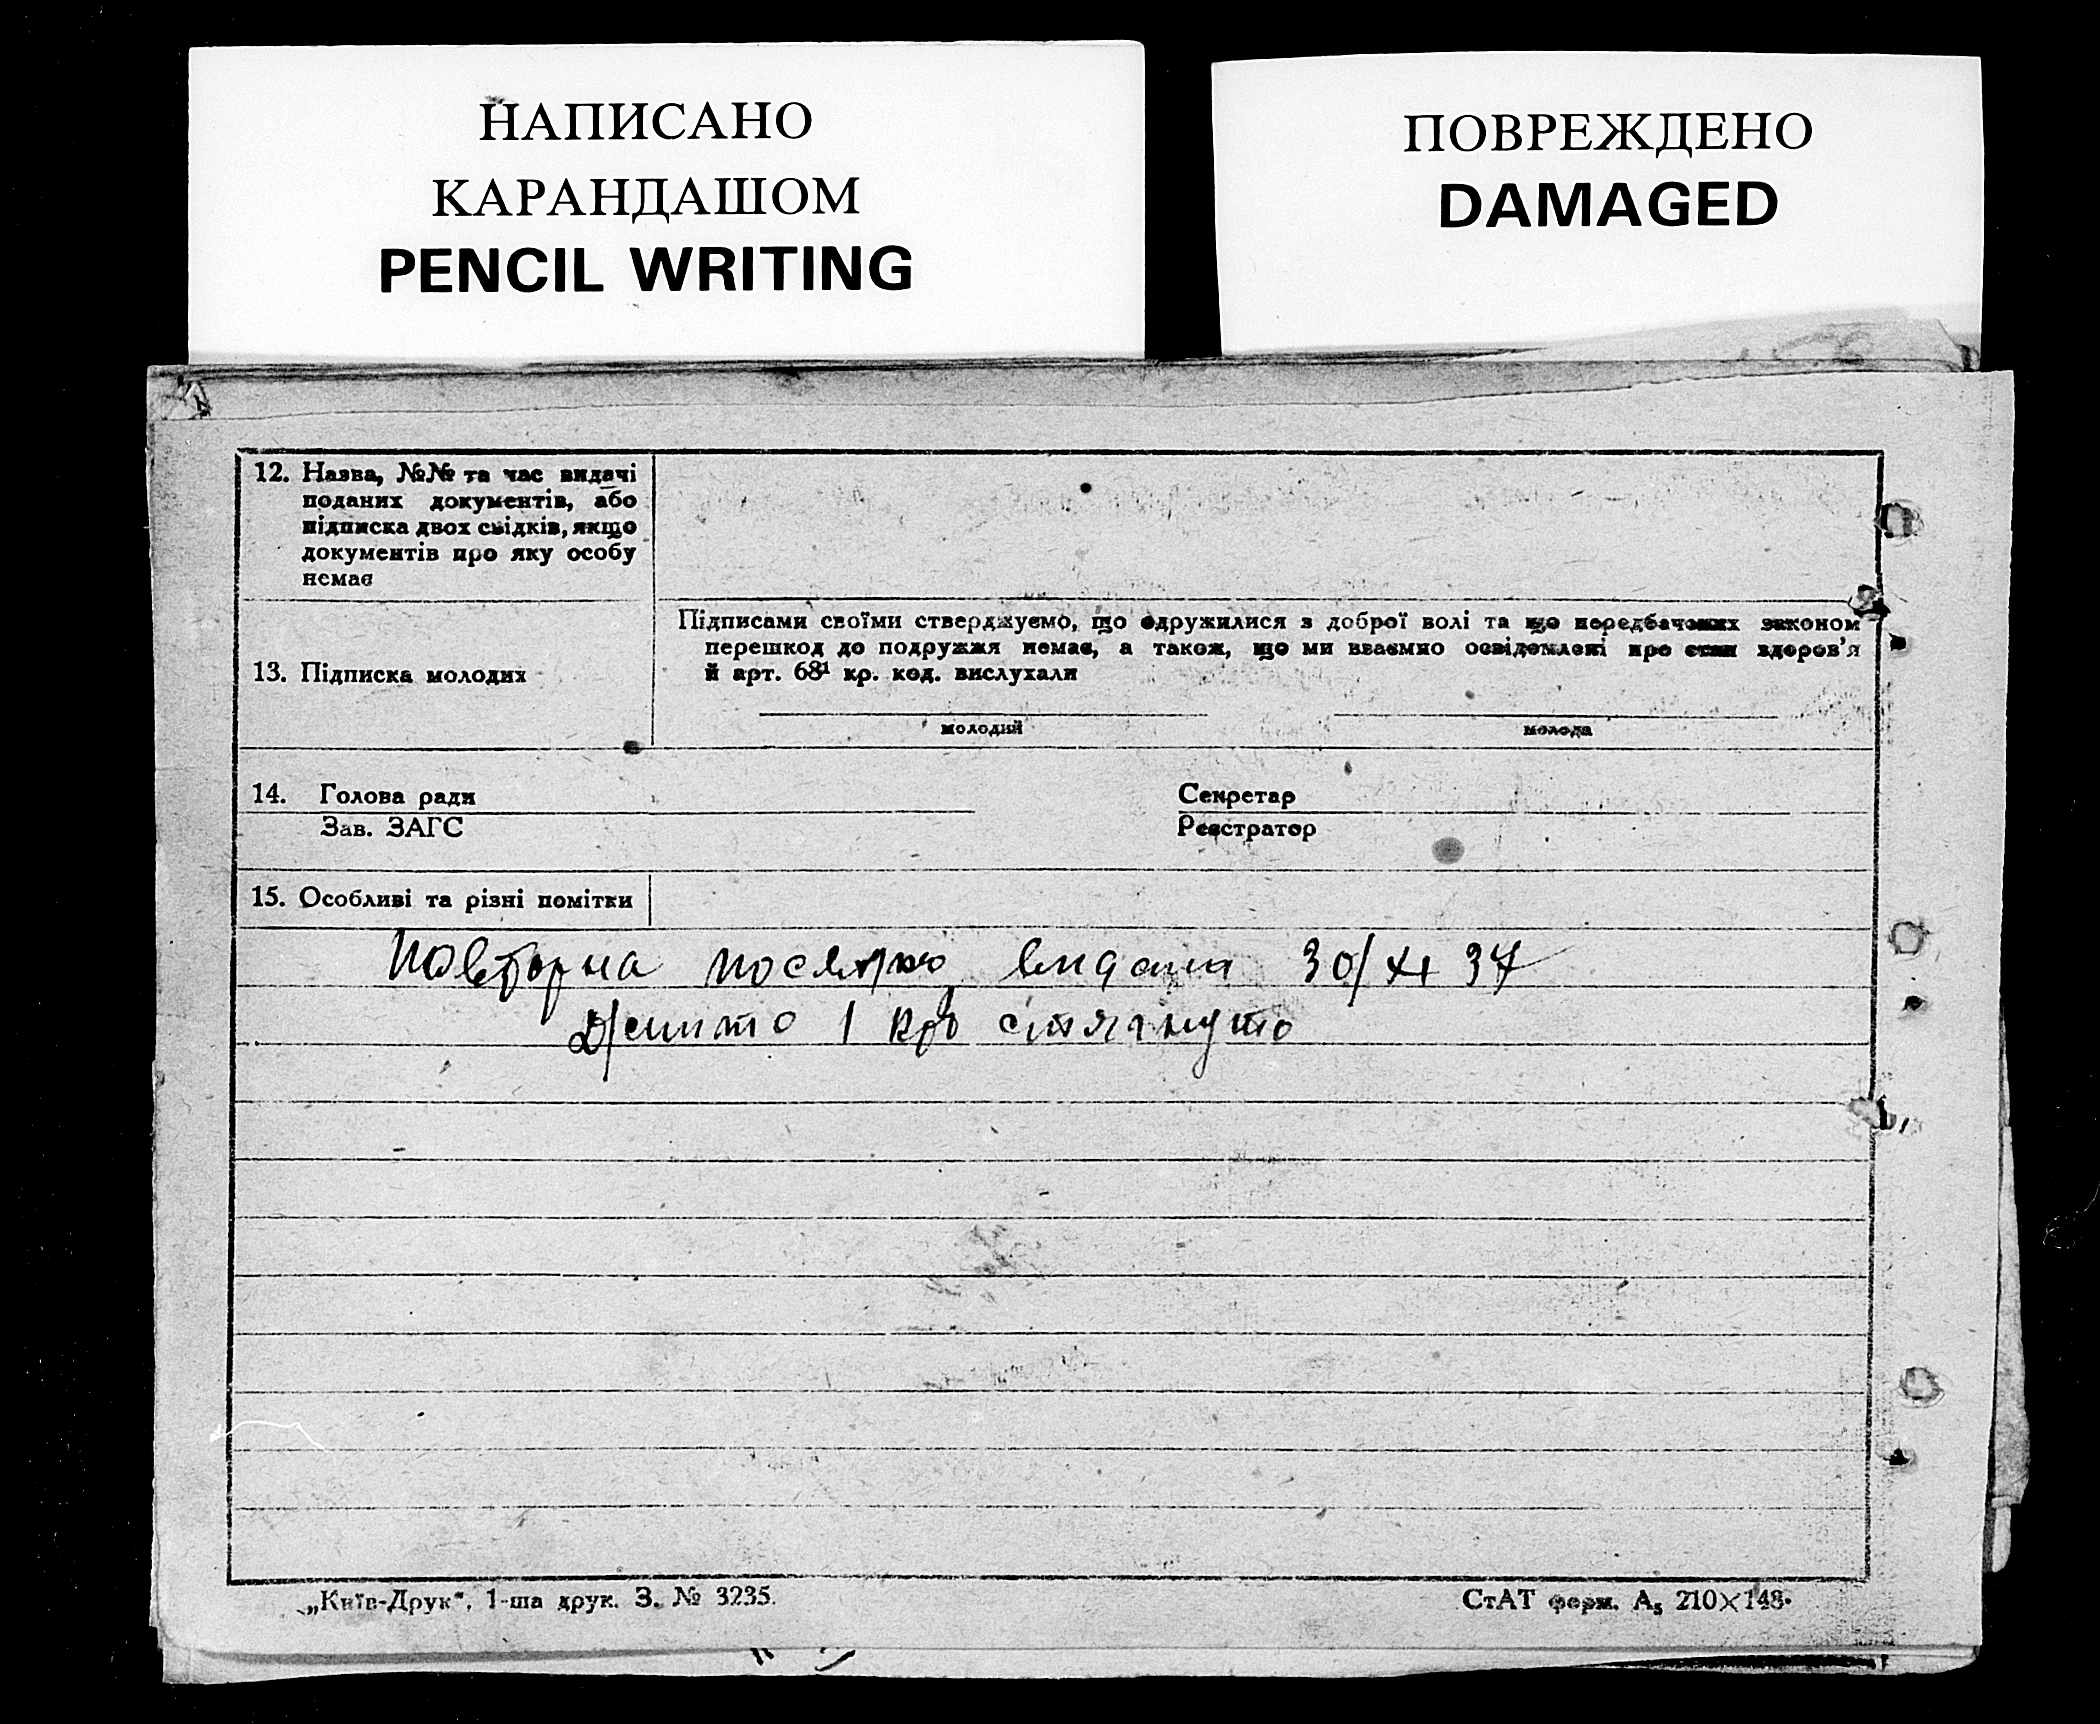 НАПИСАНО
КАРАНДАШОМ
PENCIL WRITING
ПОВРЕЖДЕНО
DAMAGED
12. Назва, №№ та час видачі
поданих документів, або
підписка двох свідків, якщо
документів про яку особу
немає
13. Підписка молодих
Підписами своїми стверджуємо, що одружилися з доброї волі та що передбачених законом
перешкод до подружжя немає, а також, що ми взаємно освідомлені про стан здоров'я
й арт. 68¹ кр. код. вислухали
молодий
молода
14. Голова ради
Секретар
Зав. ЗАГС
Реєстратор
15. Особливі та різні помітки
Повторна видана 30/ 37
1 крб стягнуто
„Київ-Друк“, 1-ша друк. З. № 3235.
СтАТ форм. А₅ 210×148.